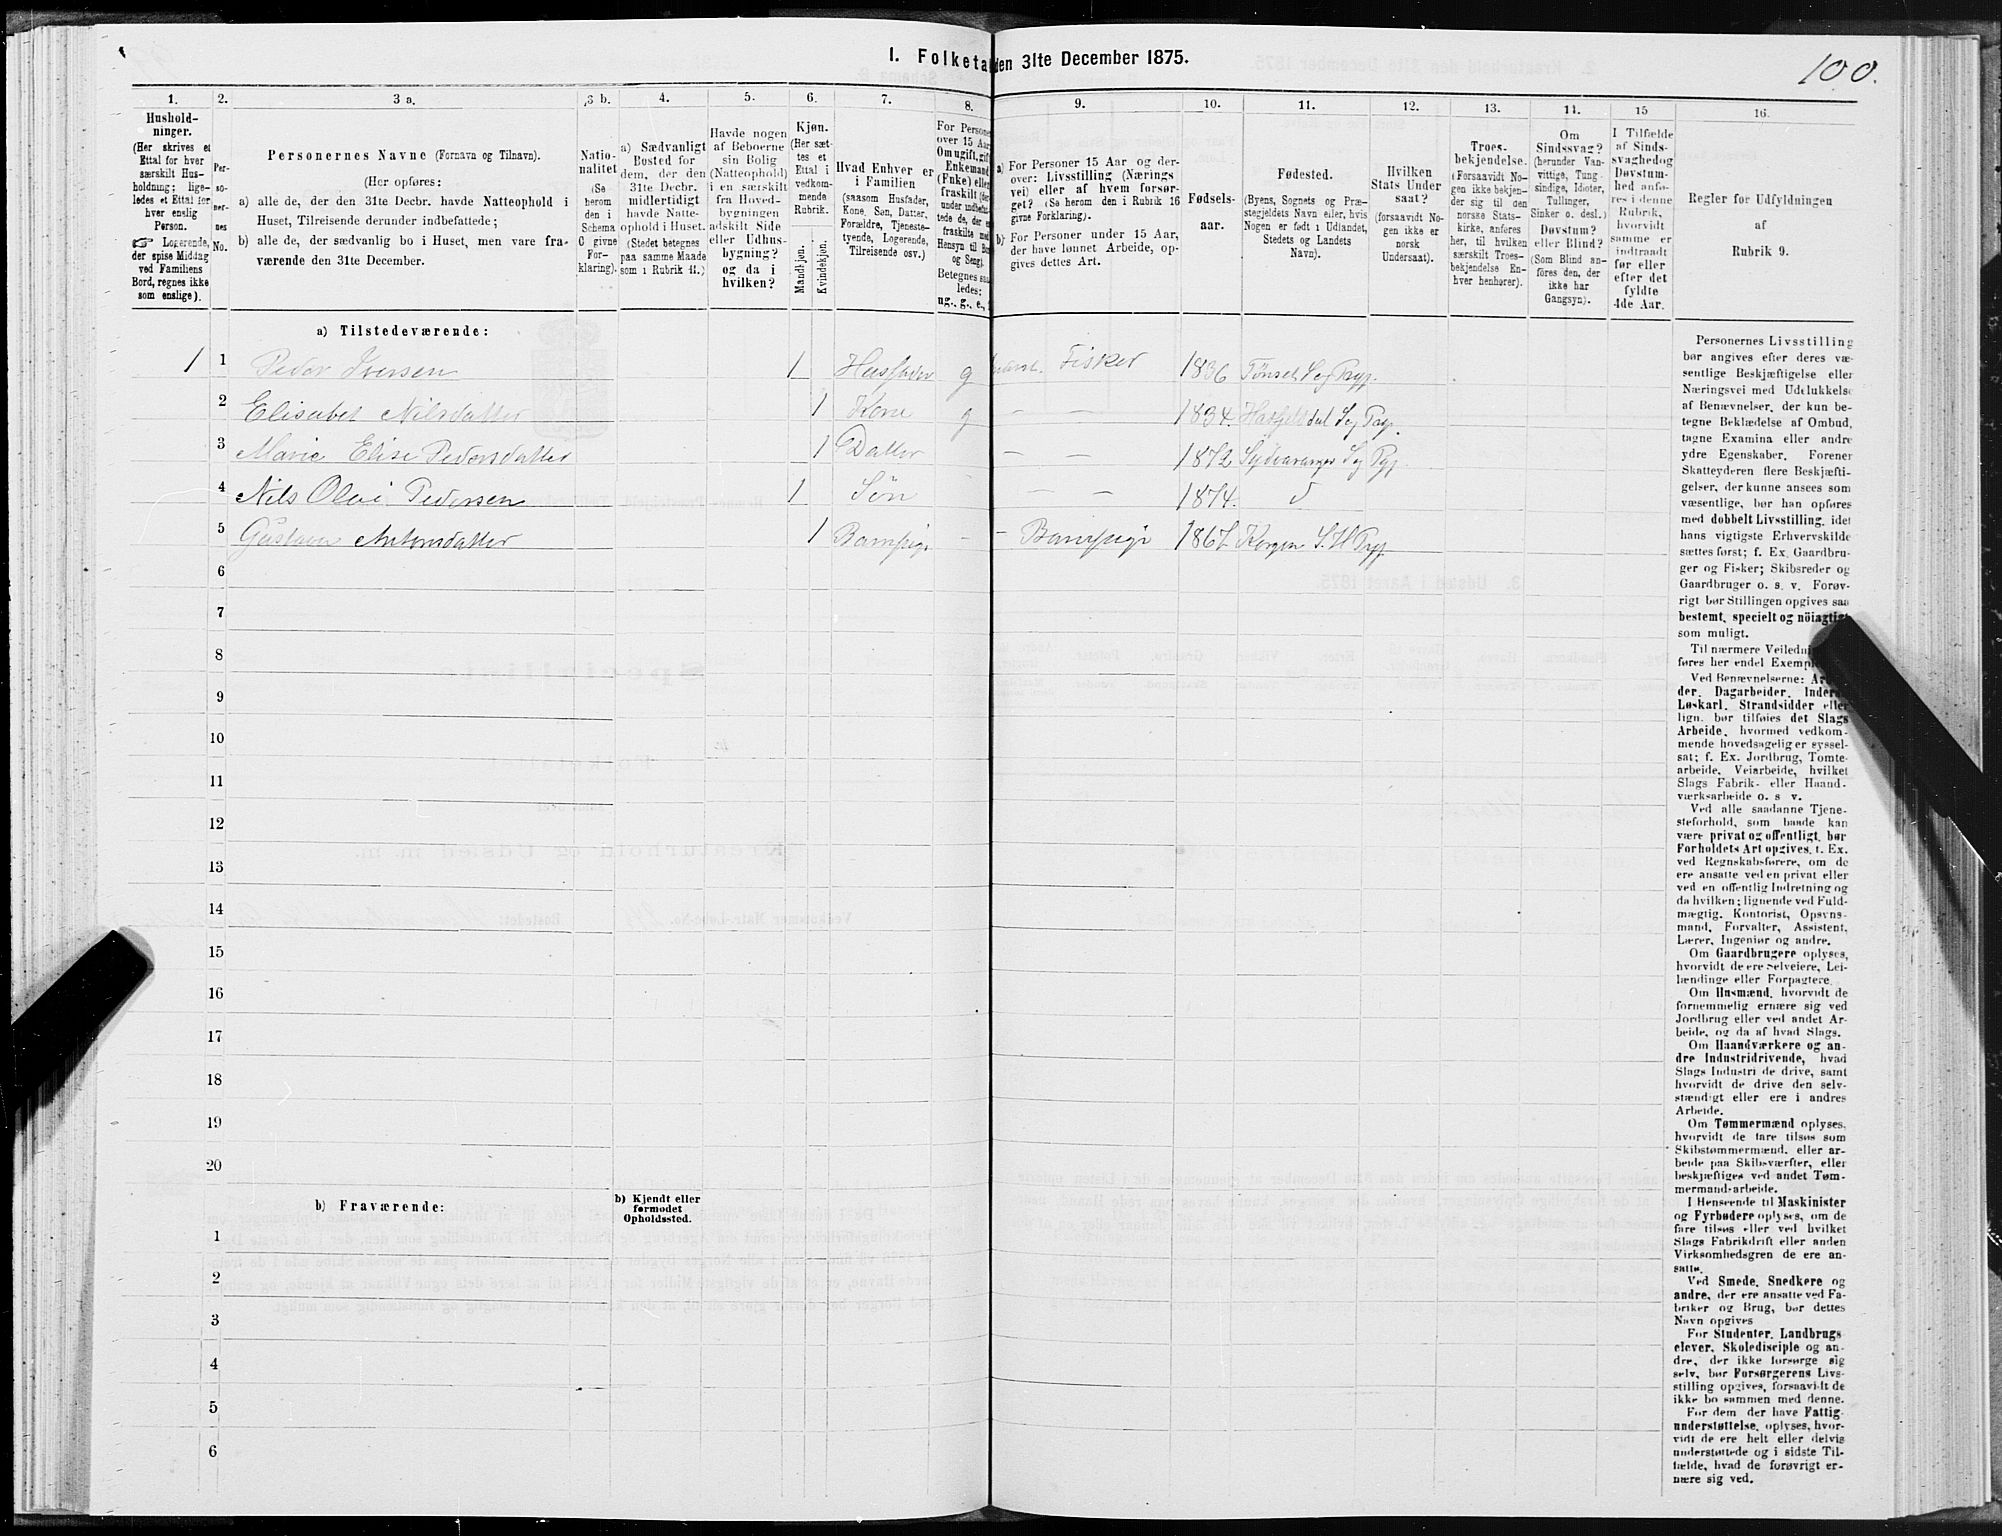 I. Folketal den 31te December 1875.
100.
1. 2. 3 a. 3 b. 4. 5. 6. 7. 8. 9. 10. 11. 12. 13. 14. 15 16.
Hushold-
ninger.
(Her skrives et
Ettal for hver
særskilt Hus-
holdning; lige-
ledes et Ettal for
hver enslig
Person.
☞ Logerende,
der spise Middag
ved Familiens
Bord, regnes ikke
som enslige).
Per-
so-
ner-
nes
No.
Personernes Navne (Fornavn og Tilnavn).
(Her opføres:
a) alle de, der den 31te Decbr. havde Natteophold i
Huset, Tilreisende derunder indbefattede;
b) alle de, der sædvanlig bo i Huset, men vare fra-
værende den 31te December.
Natio-
nalitet
(Se
herom
den i
Schema
C givne
For-
klaring).
a) Sædvanligt
Bosted for
dem, der den
31te Decbr.
midlertidigt
havde Natte-
ophold i Huset.
(Stedet betegnes
paa samme Maade
som i Rubrik 11.)
Havde nogen
af Beboerne
sin Bolig
(Natteophold)
i en særskilt
fra Hoved-
bygningen
adskilt Side
eller Udhus-
bygning?
og da i
hvilken?
Kjøn.
(Her sæt-
tes et
Ettal i
vedkom-
mende
Rubrik.
Mandkjøn.
Kvindekjøn.
Hvad Enhver er
i Familien
(saasom Husfader,
Kone, Søn, Datter,
Forældre, Tjeneste-
tyende, Logerende,
Tilreisende osv.)
For Persone
over 15 Aar
Om ugift, gift
Enkemand
(Enke) elle
fraskilt (der
under indbefat
tede de, der e
fraskilte med
Hensyn til Bo
og Seng).
Betegnes saa
ledes:
ug., g., e.,
a) For Personer 15 Aar og der-
over: Livsstilling (Nærings
vei) eller af hvem forsør-
get? (Se herom den i Rubrik 16
givne Forklaring).
b) For Personer under 15 Aar,
der have lønnet Arbeide, op-
gives dettes Art.
Fødsels-
aar.
Fødested.
(Byens, Sognets og Præ-
stegjeldets Navn eller, hvis
Nogen er født i Udlandet,
Stedets og Landets
Navn).
Hvilken
Stats Under
saat?
(forsaavidt No-
gen ikke er
norsk
Undersaat).
Troes-
bekjendelse.
(Forsaavidt No
gen ikke bekjen-
der sig til den
norske Stats-
kirke, anføres
her, til hvilken
særskilt Troes-
bekjendelse En-
hver henhører).
Om
Sindssvag?
(herunder Van-
vittige, Tung-
sindige, Idioter,
Tullinger,
Sinker o. desl.)
Døvstum?
eller Blind?
(Som Blind an-
føres den, der
ikke har
Gangsyn).
I Tilfælde
af Sinds-
svaghedog
Døvstum-
hed anfø-
res i denne
Rubrik,
hvorvidt
samme er
indtraadt
før eller
efter det
fyldte
4de Aar.
Regler for Udfyldningen
af
Rubrik 9.
a) Tilstedeværende:
1 1 Peder Iversen 1 Husfader g Fisker 1836 Tønset S og Pgj.
2 Elisabet Nilsdatter 1 Kone g — — 1834. Hatfjelddal S og Pgj.
3 Marie Elise Pedersdatter 1 Datter — — 1872 Sydvaranger S og Pgj.
4 Nils Olai Pedersen 1 Søn — — 1874.
5 Antonsdatter 1 Barnepige — — Barnepige 1867 Korgen S. H Pgj.
6
7
8
9
10
11
12
13
14
15
16
17
18
19
20
b) Fraværende:
b) Kjendt eller
formodet
Opholdssted.
1
2
3
4
5
6
Personernes Livsstilling
bør angives efter deres væ-
sentlige Beskjæftigelse eller
Næringsvei med Udelukkelse
af Benævnelser, der kun be-
tegne Beklædelse af Ombud,
tagne Examina eller andre
ydre Egenskaber. Forener
Skatteyderen flere Beskjæfti-
gelser, der kunne ansees som
væsentlige, bør han opføres
med dobbelt Livsstilling, idet
hans vigtigste Erhvervskilde
sættes først; f. Ex. Gaardbru-
ger og Fisker; Skibsreder og
Gaardbruger o. s. v. Forøv-
rigt bør Stillingen opgives saa
bestemt, specielt og nöiagtigt
som muligt.
Til nærmere Veiledni
føres her endel Exempl
Ved Benævnelserne: Ar
der, Dagarbeider, Inder
Løskarl, Strandsidder eller
lign. bør tilføies det Slags
Arbeide, hvormed vedkom-
mende hovedsagelig er syssel-
sat; f. Ex. Jordbrug, Tomte-
arbeide, Veiarbeide, hvilket
Slags Fabrik- eller Haand-
værksarbeide o. s. v.
Ved alle saadanne Tjene-
steforhold, som baade kan
være privat og offentligt, bør
Forholdets Art opgives, f. Ex.
ved Regnskabsførere, om de
ere ansatte ved en privat eller
ved en offentlig Indretning og
da hvilken; lignende ved Fuld-
mægtig, Kontorist, Opsyns-
mand, Forvalter, Assistent,
Lærer, Ingeniør og andre.
Om Gaardbrugere oplyses,
hvorvidt de ere Selveiere, Lei-
lændinge eller Forpagtere.
Om Husmænd, hvorvidt de
fornemmelig ernære sig ved
Jordbrug eller ved andet Ar-
beide, og da af hvad Slags.
Om Haandværkere og an-
dre Industridrivende, hvad
Slags Industri de drive, samt
hvorvidt de drive den selv-
stændigt eller ere i andres
Arbeide.
Om Tømmermænd oplyses,
hvorvidt de fare tilsøs som
Skibstømmermænd, eller ar-
beide paa Skibsværfter, eller
beskjæftiges ved andet Tøm-
mermand-arbeide.
I Henseende til Maskinister
og Fyrbødere oplyses, om de
fare tilsøs eller ved hvilket
Slags Fabrikdrift eller anden
Virksomhedsgren de ere an-
satte.
Ved Smede, Snedkere og
andre, der ere ansatte ved Fa-
briker og Brug, bør dettes
Navn opgives
For Studenter, Landbrugs
elever, Skoledisciple og an-
dre, der ikke forsørge sig
selv, bør Forsørgerens Livs-
stilling opgives, forsaavidt de
ikke bo sammen med denne.
For dem der have Fattig-
understøttelse, oplyses, hvor-
vidt de ere helt eller delvis
understøttede og i sidste Til-
fælde, hvad de forøvrigt er-
nære sig ved.